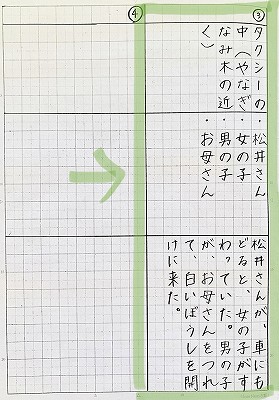 ③
タクシーの
中(やなぎ
なみ木の近
く)
・松井さん
・女の子
・男の子
・お母さん
松井さんが、車にも
どると、女の子がす
わっていた。男の子
が、お母さんをつれ
て、白いぼうしを開
けに来た。
④